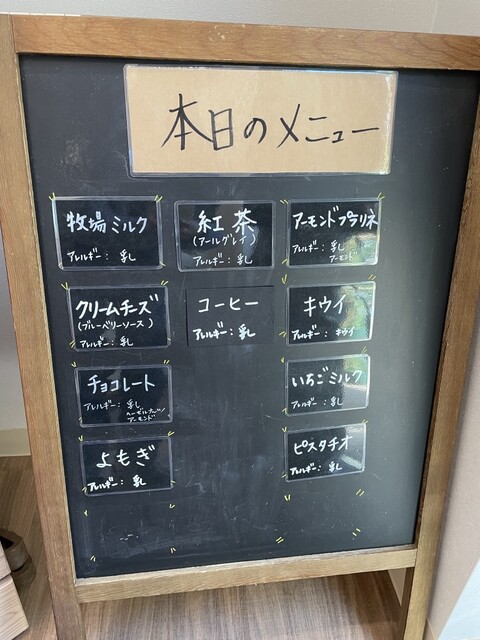 本日のメニュー
牧場ミルク
アレルギー：乳
クリームチーズ
(ブルーベリーソース)
アレルギー：乳
チョコレート
アレルギー：乳
ヘーゼルナッツ
アーモンド
よもぎ
アレルギー：乳
紅茶
(アールグレイ)
アレルギー：乳
コーヒー
アレルギー：乳
アーモンドプラリネ
アレルギー：乳
アーモンド
キウイ
アレルギー：キウイ
いちごミルク
アレルギー：乳
ピスタチオ
アレルギー：乳